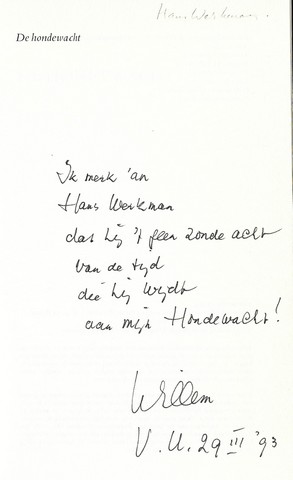 Hans Werkman
De hondewacht
Ik merk 'an
Hans Werkman
dat hij 't geen zonde acht
van de tijd
die hij wijdt
aan mijn Hondewacht!
Willem
V.U. 29 III '93